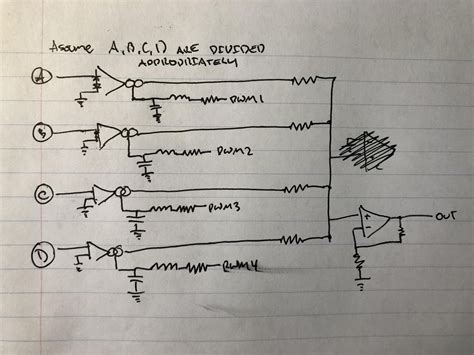 Assume A,B,C,D ARE DIVIDED
APPROPRIATELY
A
PWM1
B
PWM2
C
PWM3
+
-
OUT
D
PWM4